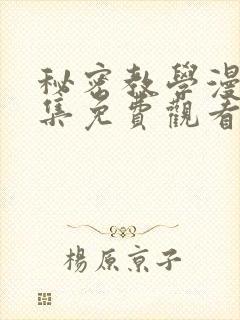 秘密教學漫
集免費觀看
楊原京子